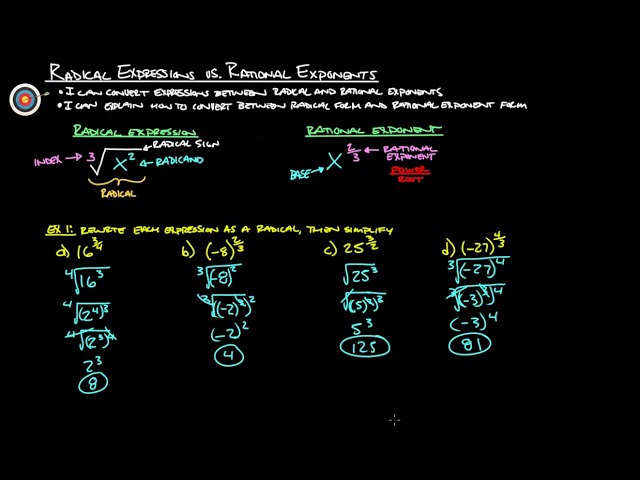 RADICAL EXPRESSIONS VS. RATIONAL EXPONENTS
• I CAN CONVERT EXPRESSIONS BETWEEN RADICAL AND RATIONAL EXPONENTS
• I CAN EXPLAIN HOW TO CONVERT BETWEEN RADICAL FORM AND RATIONAL EXPONENT FORM
RADICAL EXPRESSION
RADICAL SIGN
INDEX → 3√x² ← RADICAND
RADICAL
RATIONAL EXPONENT
BASE → x^(2/3) ← RATIONAL EXPONENT
POWER
ROOT
EX 1: REWRITE EACH EXPRESSION AS A RADICAL, THEN SIMPLIFY
a) 16^(3/4)
⁴√16³
⁴√(2⁴)³
⁴√(2³)⁴
2³
8
b) (-8)^(2/3)
³√(-8)²
³√((-2)³)²
(-2)²
4
c) 25^(3/2)
√25³
√(5²)³
5³
125
d) (-27)^(4/3)
³√(-27)⁴
³√((-3)³)⁴
(-3)⁴
81